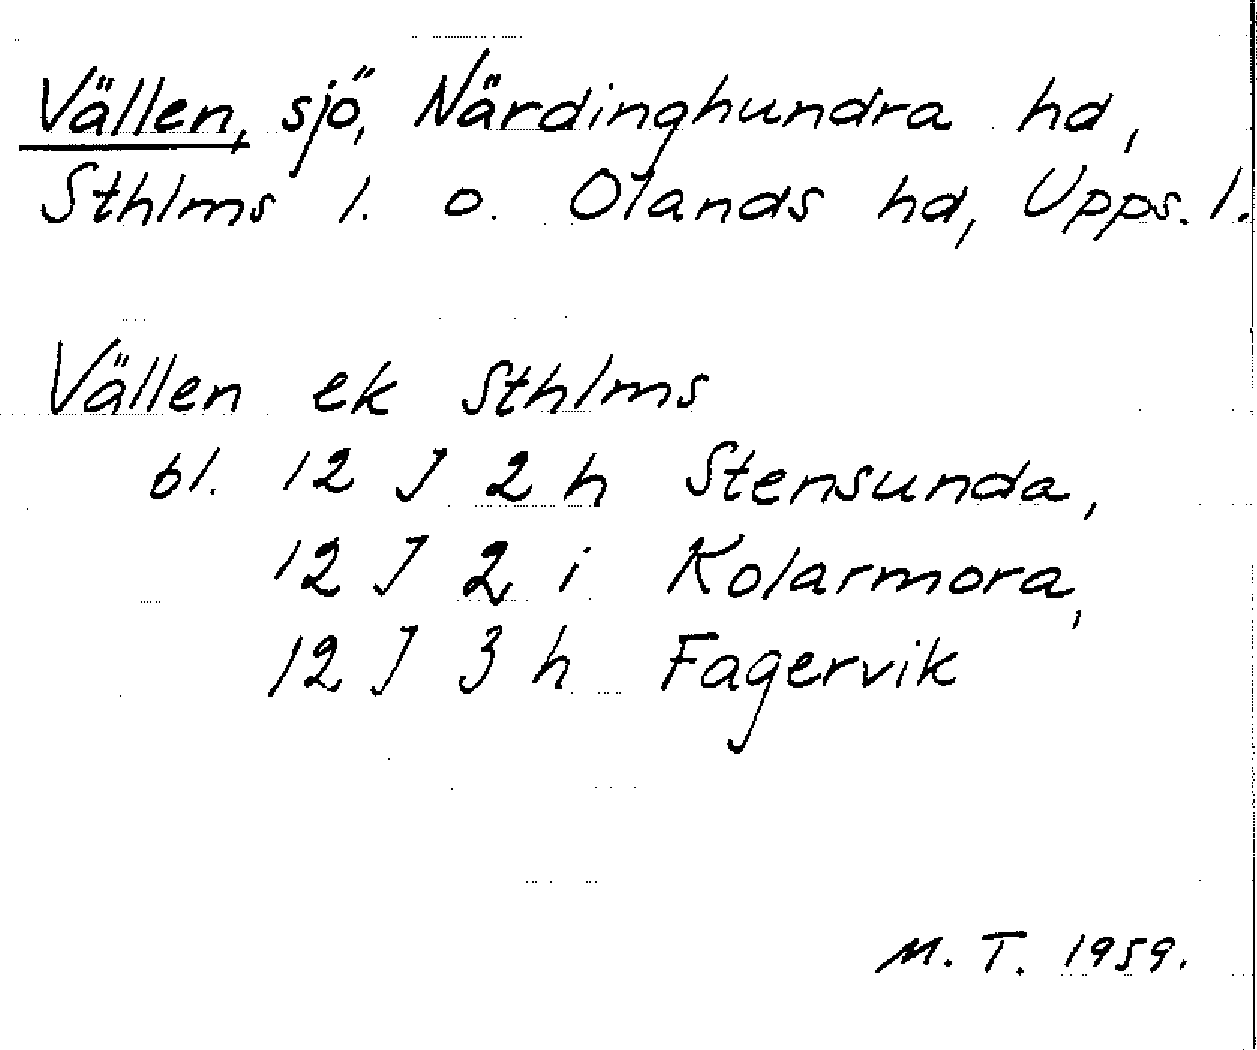 Vällen, sjö, Närdinghundra hd,
Sthlms l. o. Olands hd, Upps. l.
Vällen ek Sthlms
bl. 12 J 2 h Stensunda,
12 J 2 i Kolarmora,
12 J 3 h Fagervik
M. T. 1959.